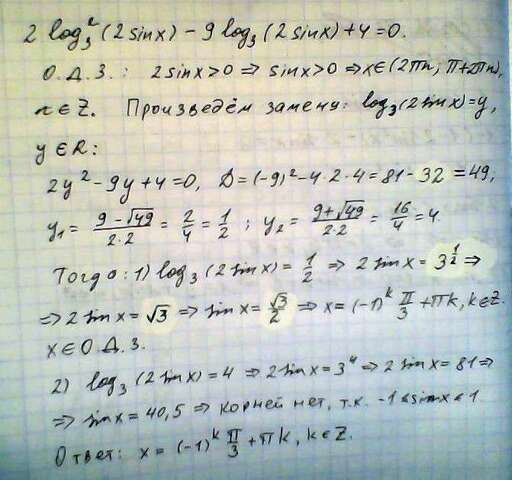 2 log₃²(2 sinx) − 9 log₃(2 sinx) + 4 = 0.
О.Д.З.: 2 sinx > 0 ⇒ sinx > 0 ⇒ x ∈ (2πn; π+2πn),
n ∈ Z. Произведём замену: log₃(2 sinx) = y,
y ∈ R:
2y² − 9y + 4 = 0, D = (−9)² − 4·2·4 = 81 − 32 = 49;
y₁ = (9 − √49)/(2·2) = 2/4 = 1/2; y₂ = (9 + √49)/(2·2) = 16/4 = 4.
Тогда: 1) log₃(2 sinx) = 1/2 ⇒ 2 sinx = 3^(1/2) ⇒
⇒ 2 sinx = √3 ⇒ sinx = √3/2 ⇒ x = (−1)^k π/3 + πk, k ∈ Z.
x ∈ О.Д.З.
2) log₃(2 sinx) = 4 ⇒ 2 sinx = 3⁴ ⇒ 2 sinx = 81 ⇒
⇒ sinx = 40,5 ⇒ корней нет, т.к. −1 ≤ sinx ≤ 1.
Ответ: x = (−1)^k π/3 + πk, k ∈ Z.